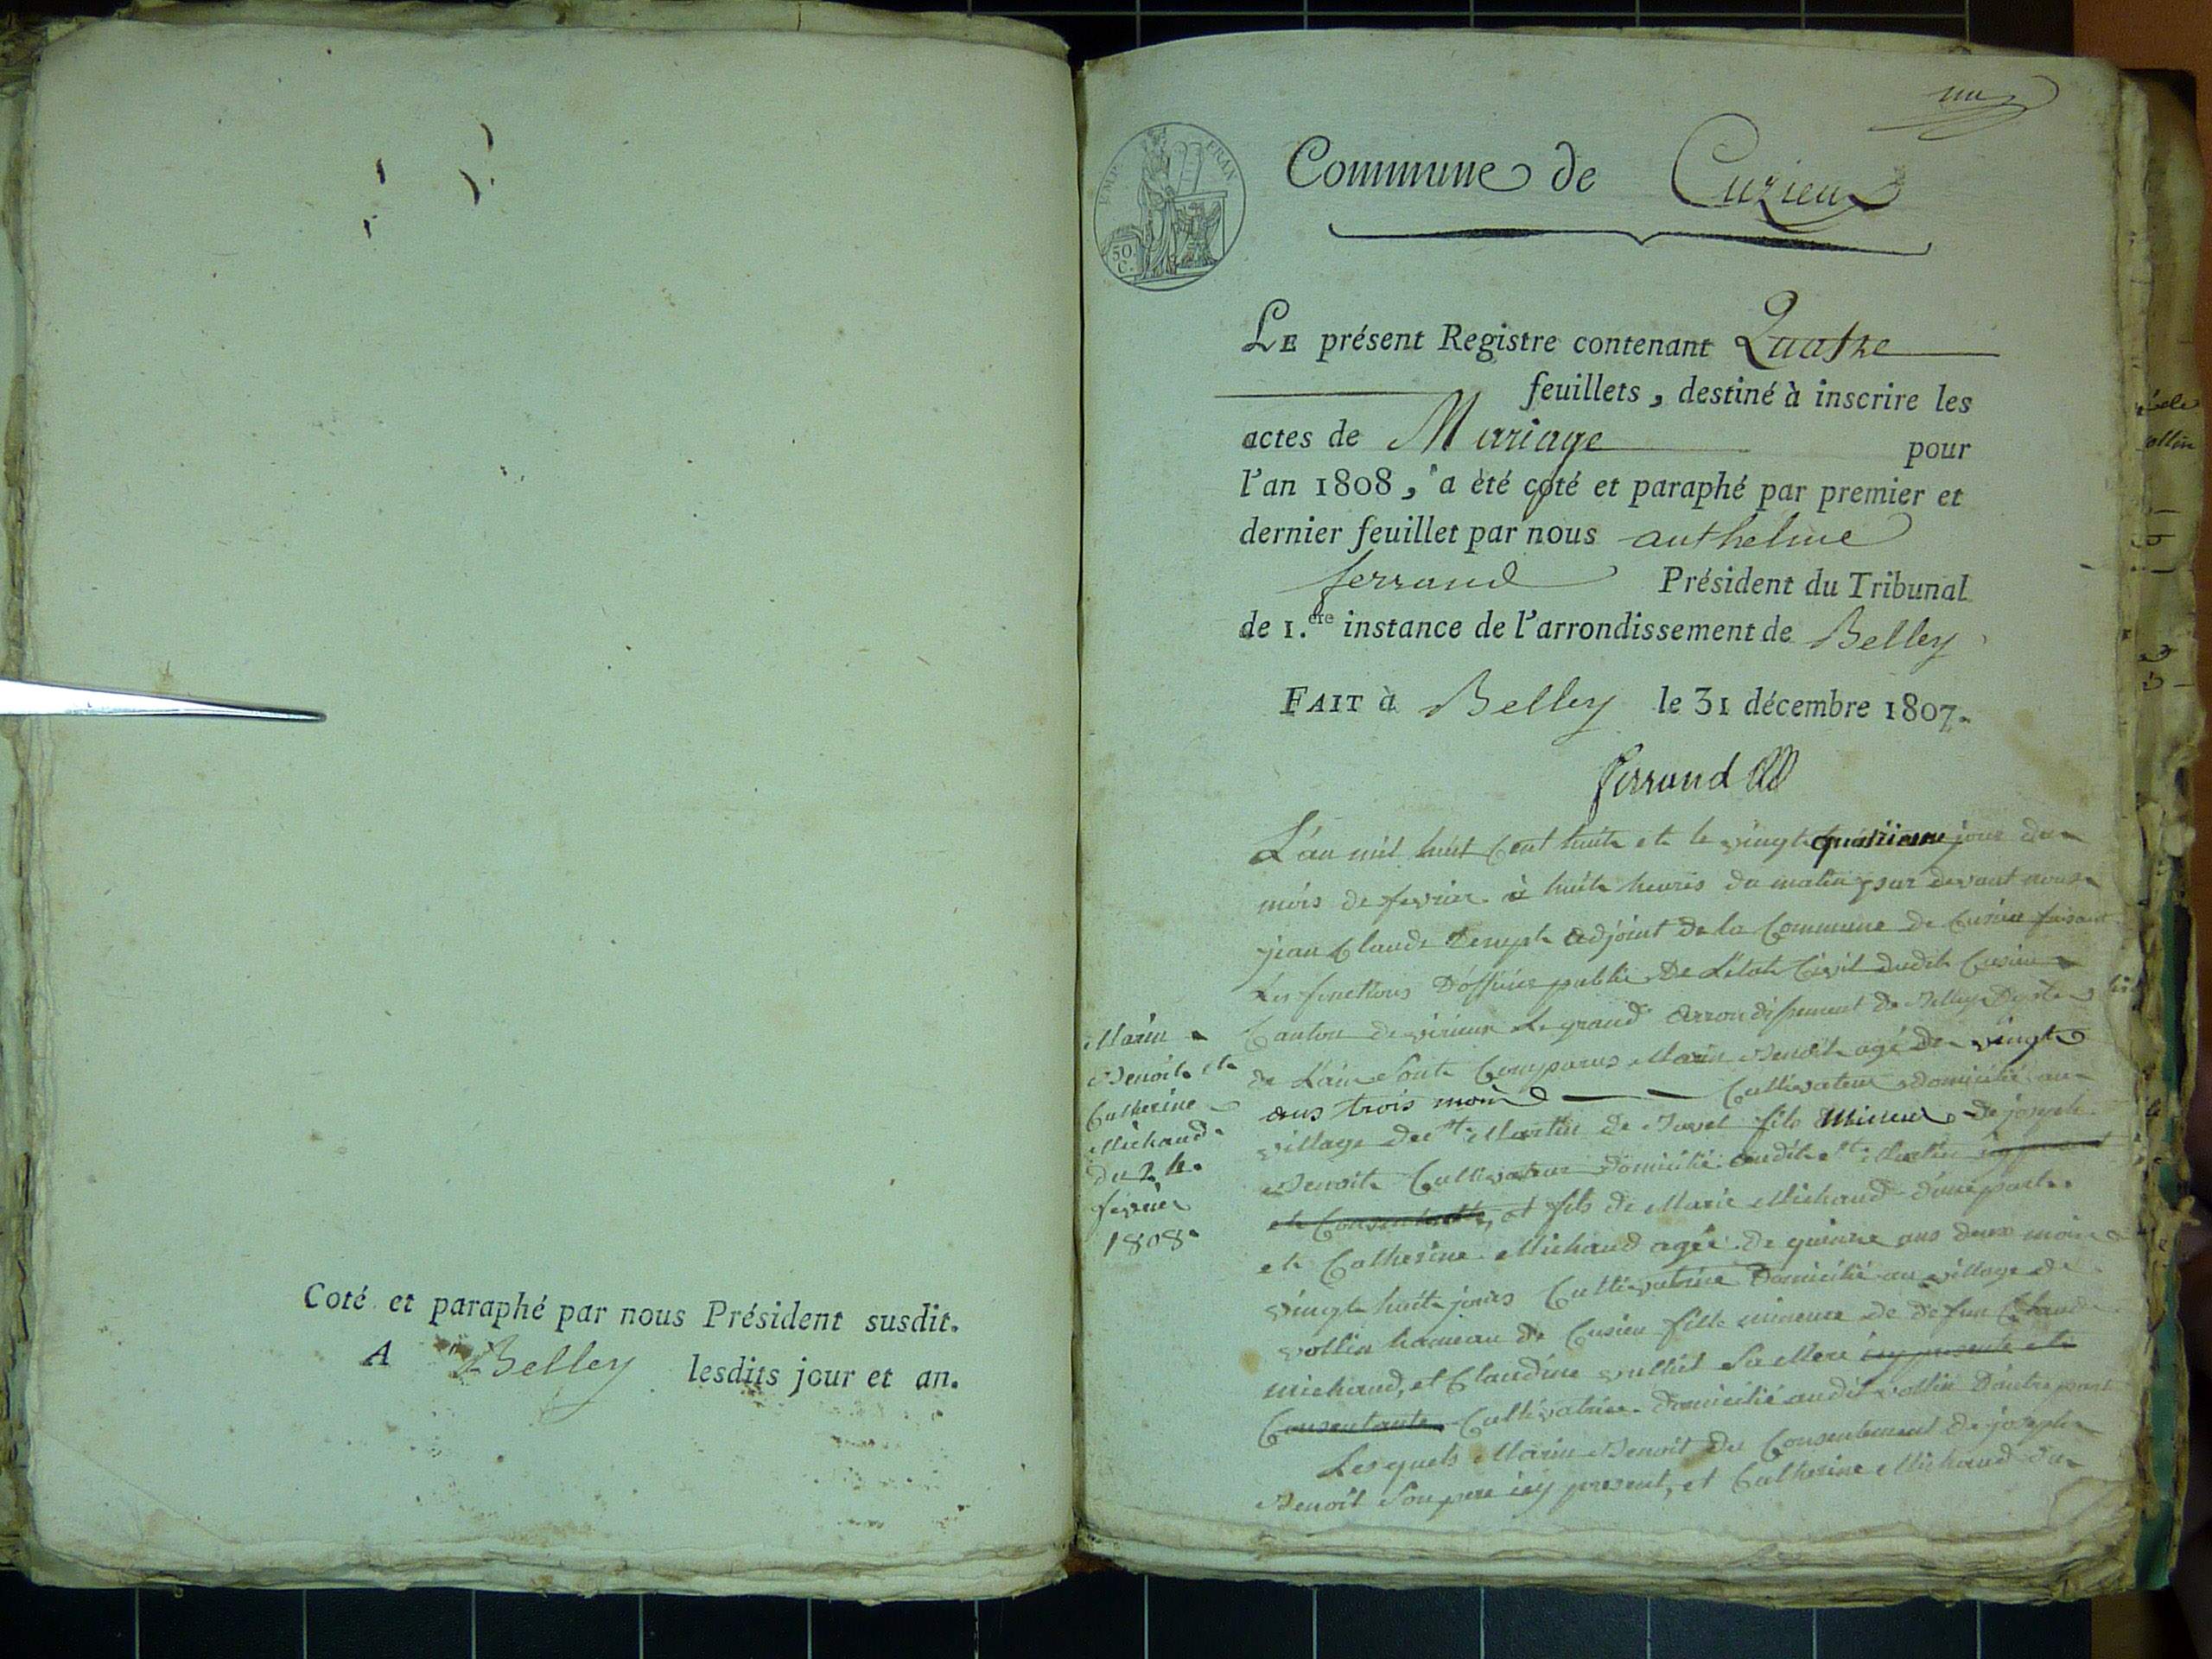 Coté et paraphé par nous Président susdit.
A Belley lesdits jour et an.
un
EMP. FRAN
50
C.
Commune de Cuzieu
LE présent Registre contenant Quatre
feuillets, destiné à inscrire les
actes de Mariage pour
l'an 1808, a èté coté et paraphé par premier et
dernier feuillet par nous anthelme
ferrand Président du Tribunal
de 1.ere instance de l'arrondissement de Belley
FAIT à Belley le 31 décembre 1807.
ferrand
L'an mil huit Cent huit et le vingt quatrieme jour du
mois de fevrier à huit heures du matin par devant nous
jean Claude adjoint de la Commune de Cusieu faisant
Les fonctions D'officier public De L'état Civil dudit Cusieu
Canton de virieux Le grand arrondissement de Belley Dept
de L'ain Sont Comparus Marin Benoit agé de vingt
ans trois mois Cultivateur domicilié au
village de st Martin de Bavel fils Mineur de joseph
Benoit Cultivateur Domicilié audit st Martin icy present
et Consentant, et fils de Marie Michaud d'une part.
et Catherine Michaud agée de quinze ans deux mois
vingt huit jours Cultivatrice Domicilié au village de
vollin hameau de Cusieu fille mineure de defun Claude
michaud, et Claudine vulliet Sa Mere icy presente et
Consentante Cultivatrice Domicilié audit vollin D'autre part
Lesquels Marin Benoit du Consentement de joseph
Benoit Son pere icy present, et Catherine Michaud du
Marin
Benoit et
Catherine
Michaud
du 24
fevrier
1808.